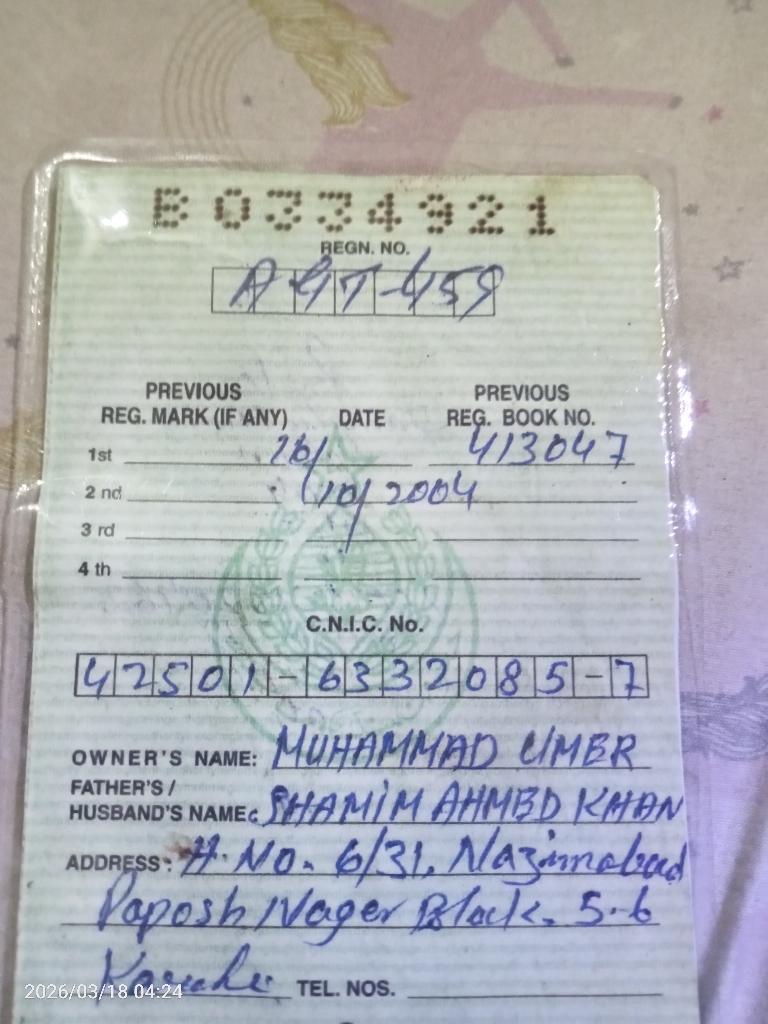 B0334921
REGN. NO.
AGT-459
PREVIOUS REG. MARK (IF ANY) DATE PREVIOUS REG. BOOK NO.
1st 26/ 413047
2 nd /10/2004
3 rd
4 th
C.N.I.C. No.
42501-6332085-7
OWNER'S NAME: MUHAMMAD UMER
FATHER'S /
HUSBAND'S NAME: SHAMIM AHMED KHAN
ADDRESS: H. No. 6/31, Nazimabad
Paposh Nager Block. 5-6
Karachi TEL. NOS.
2026/03/18 04:24